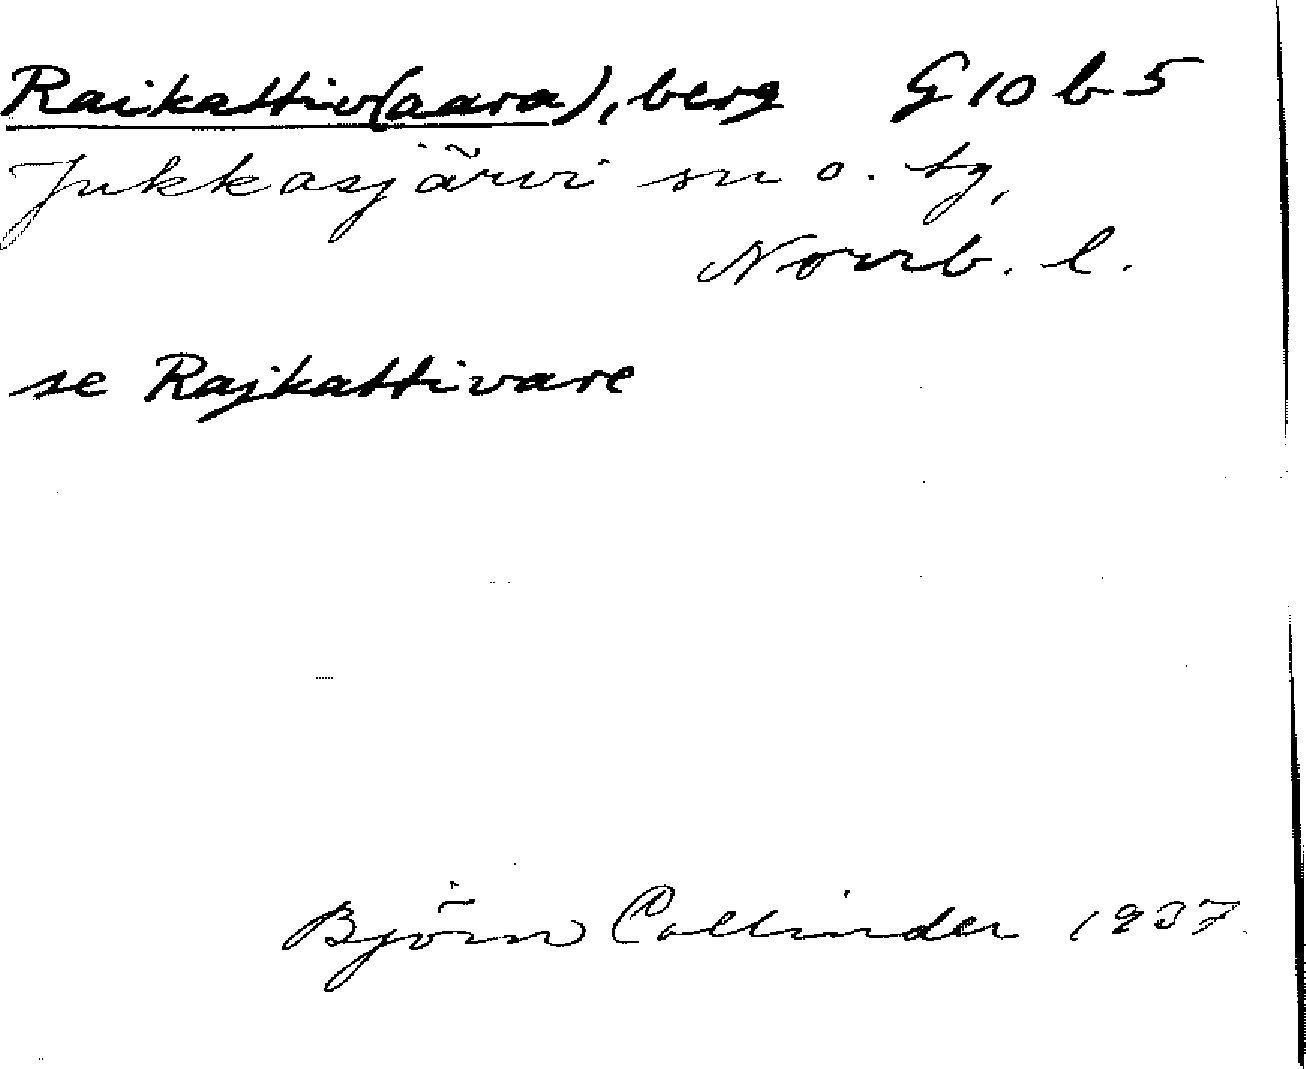 Raikattiv(aara), berg G 10 b 5
Jukkasjärvi sn o. tg,
Norrb. l.
se Rajkattivare
Björn Collinder 1937